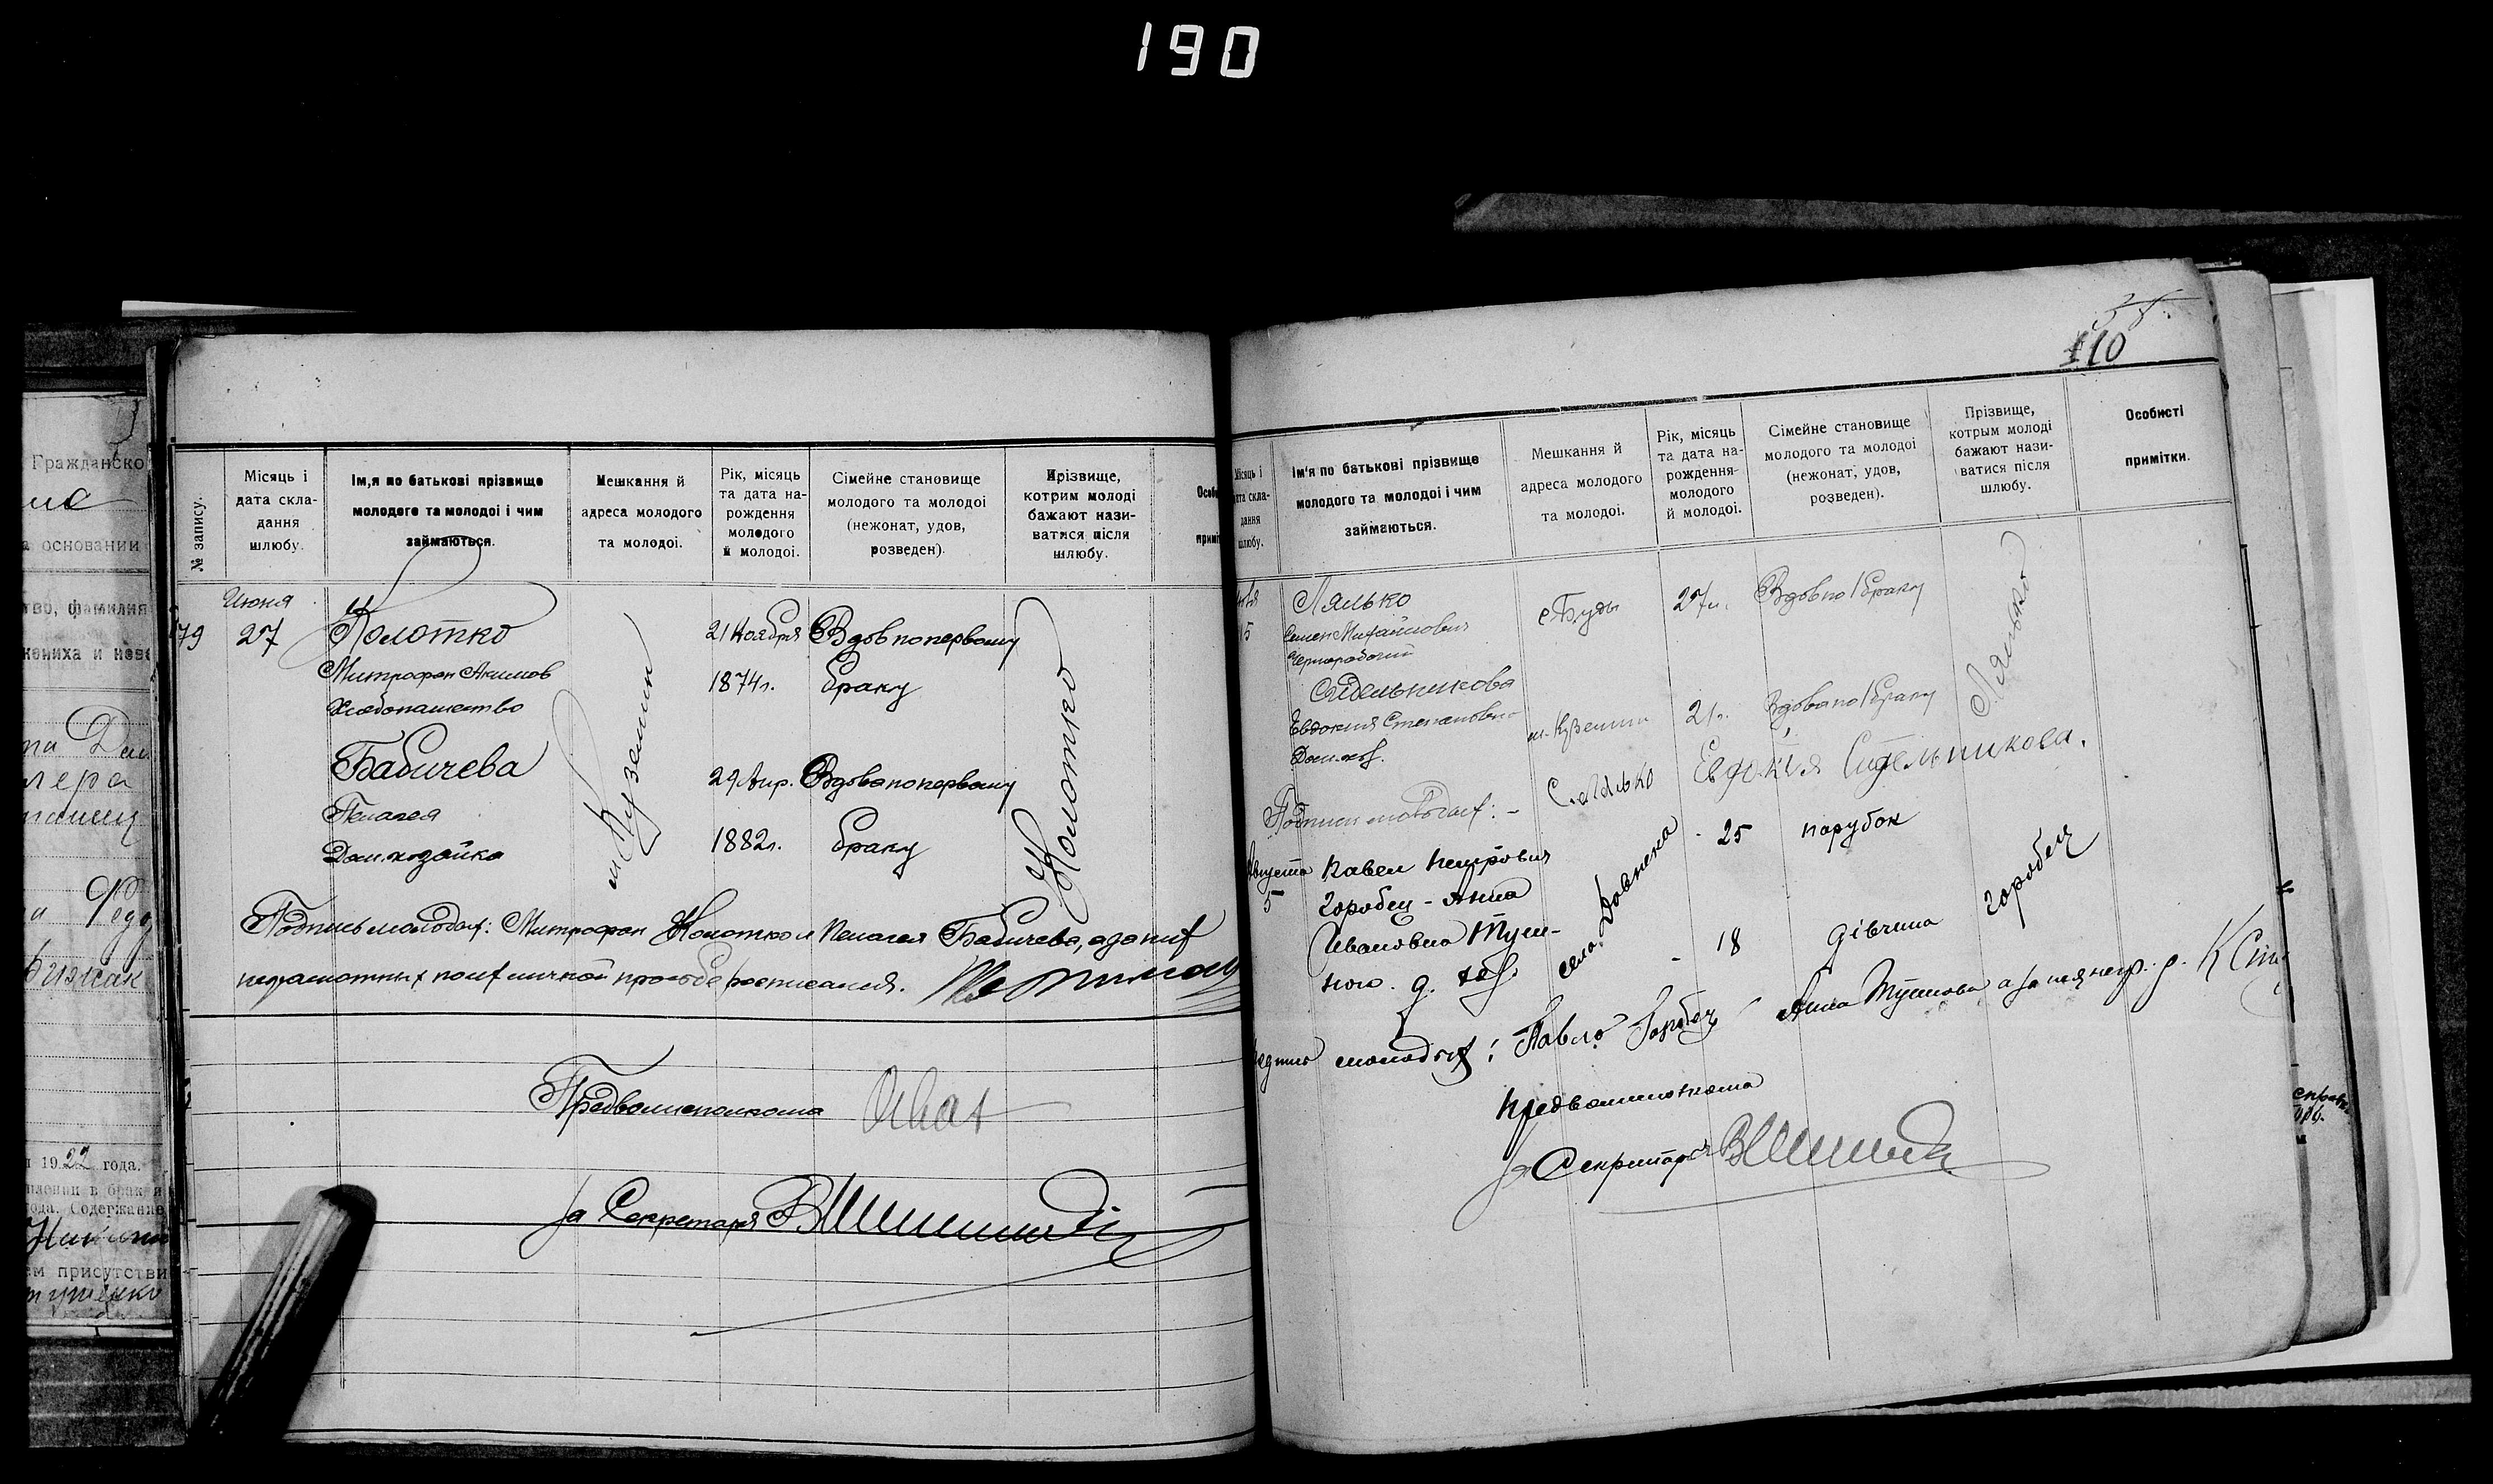 190
110
Гражданско
основании
тво, фамилия
жениха и неве
1922 года.
ода. Содержание
ем присутстви
№ запису.
Місяць і
дата скла-
дання
шлюбу.
Ім,я по батькові прізвище
молодого та молодоі і чим
займаються.
Мешкання й
адреса молодого
та молодоі.
Рік, місяць
та дата на-
рождення
молодого
й молодоі.
Сімейне становище
молодого та молодоі
(нежонат, удов,
розведен).
Прізвище,
котрим молоді
бажают нази-
ватися після
шлюбу.
Июня
79 27
Колотко
Митрофан Акимов
Хлебопашество
м Куземин
21 Ноября
1874г.
Вдов по первому
браку
Колотко
Бабичева
Пелагея
Дом.хозяйка
29 Апр.
1882г.
Вдова по первому
браку
Подпись молодых: Митрофан Колотко и Пелагея Бабичева, а за них
неграмотных по их личной просьбе росписался.
Предволисполкома
За Секретаря
Місяць і
дата скла-
дання
шлюбу.
Ім'я по батькові прізвище
молодого та молодоі і чим
займаються.
Мешкання й
адреса молодого
та молодоі.
Рік, місяць
та дата на-
рождення
молодого
й молодоі.
Сімейне становище
молодого та молодоі
(нежонат, удов,
розведен).
Прізвище,
котрым молоді
бажают нази-
ватися після
шлюбу.
Особисті
примітки.
5
Лялько
Семен Михайлович
Чернорабочий
с Буды
27л.
Вдов по 1 браку
Лялько
Сидельникова
Евдокия Степановна
Дом.хоз.
м. Куземин
21г.
Вдова по 1 браку
Подписи молодых: - С. Лялько Евдокія Сидельникова.
Августа
5
Павел Петрович
Горобец - Анна
Ивановна Туш-
25
парубок
Горобец
село
18
дівчина
Подпись молодых: Павло Горобец Анна Тушнова а за нея негр. р.
Предволисполкома
За Секретаря